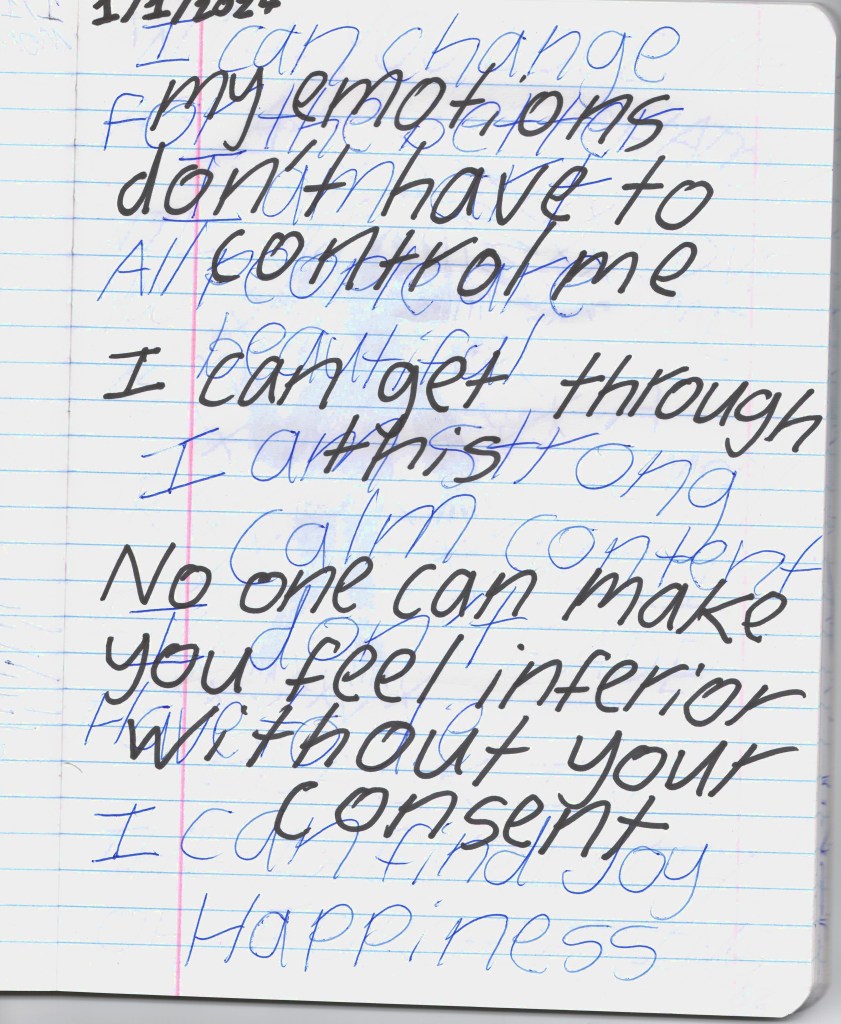 1/1/2024
I can change
my emotions
For the better
don't have to
control me
All people are
beautiful
I can get through
this
I am strong
calm content
No one can make
I don't
you feel inferior
Have to
without your
consent
I can find joy
Happiness